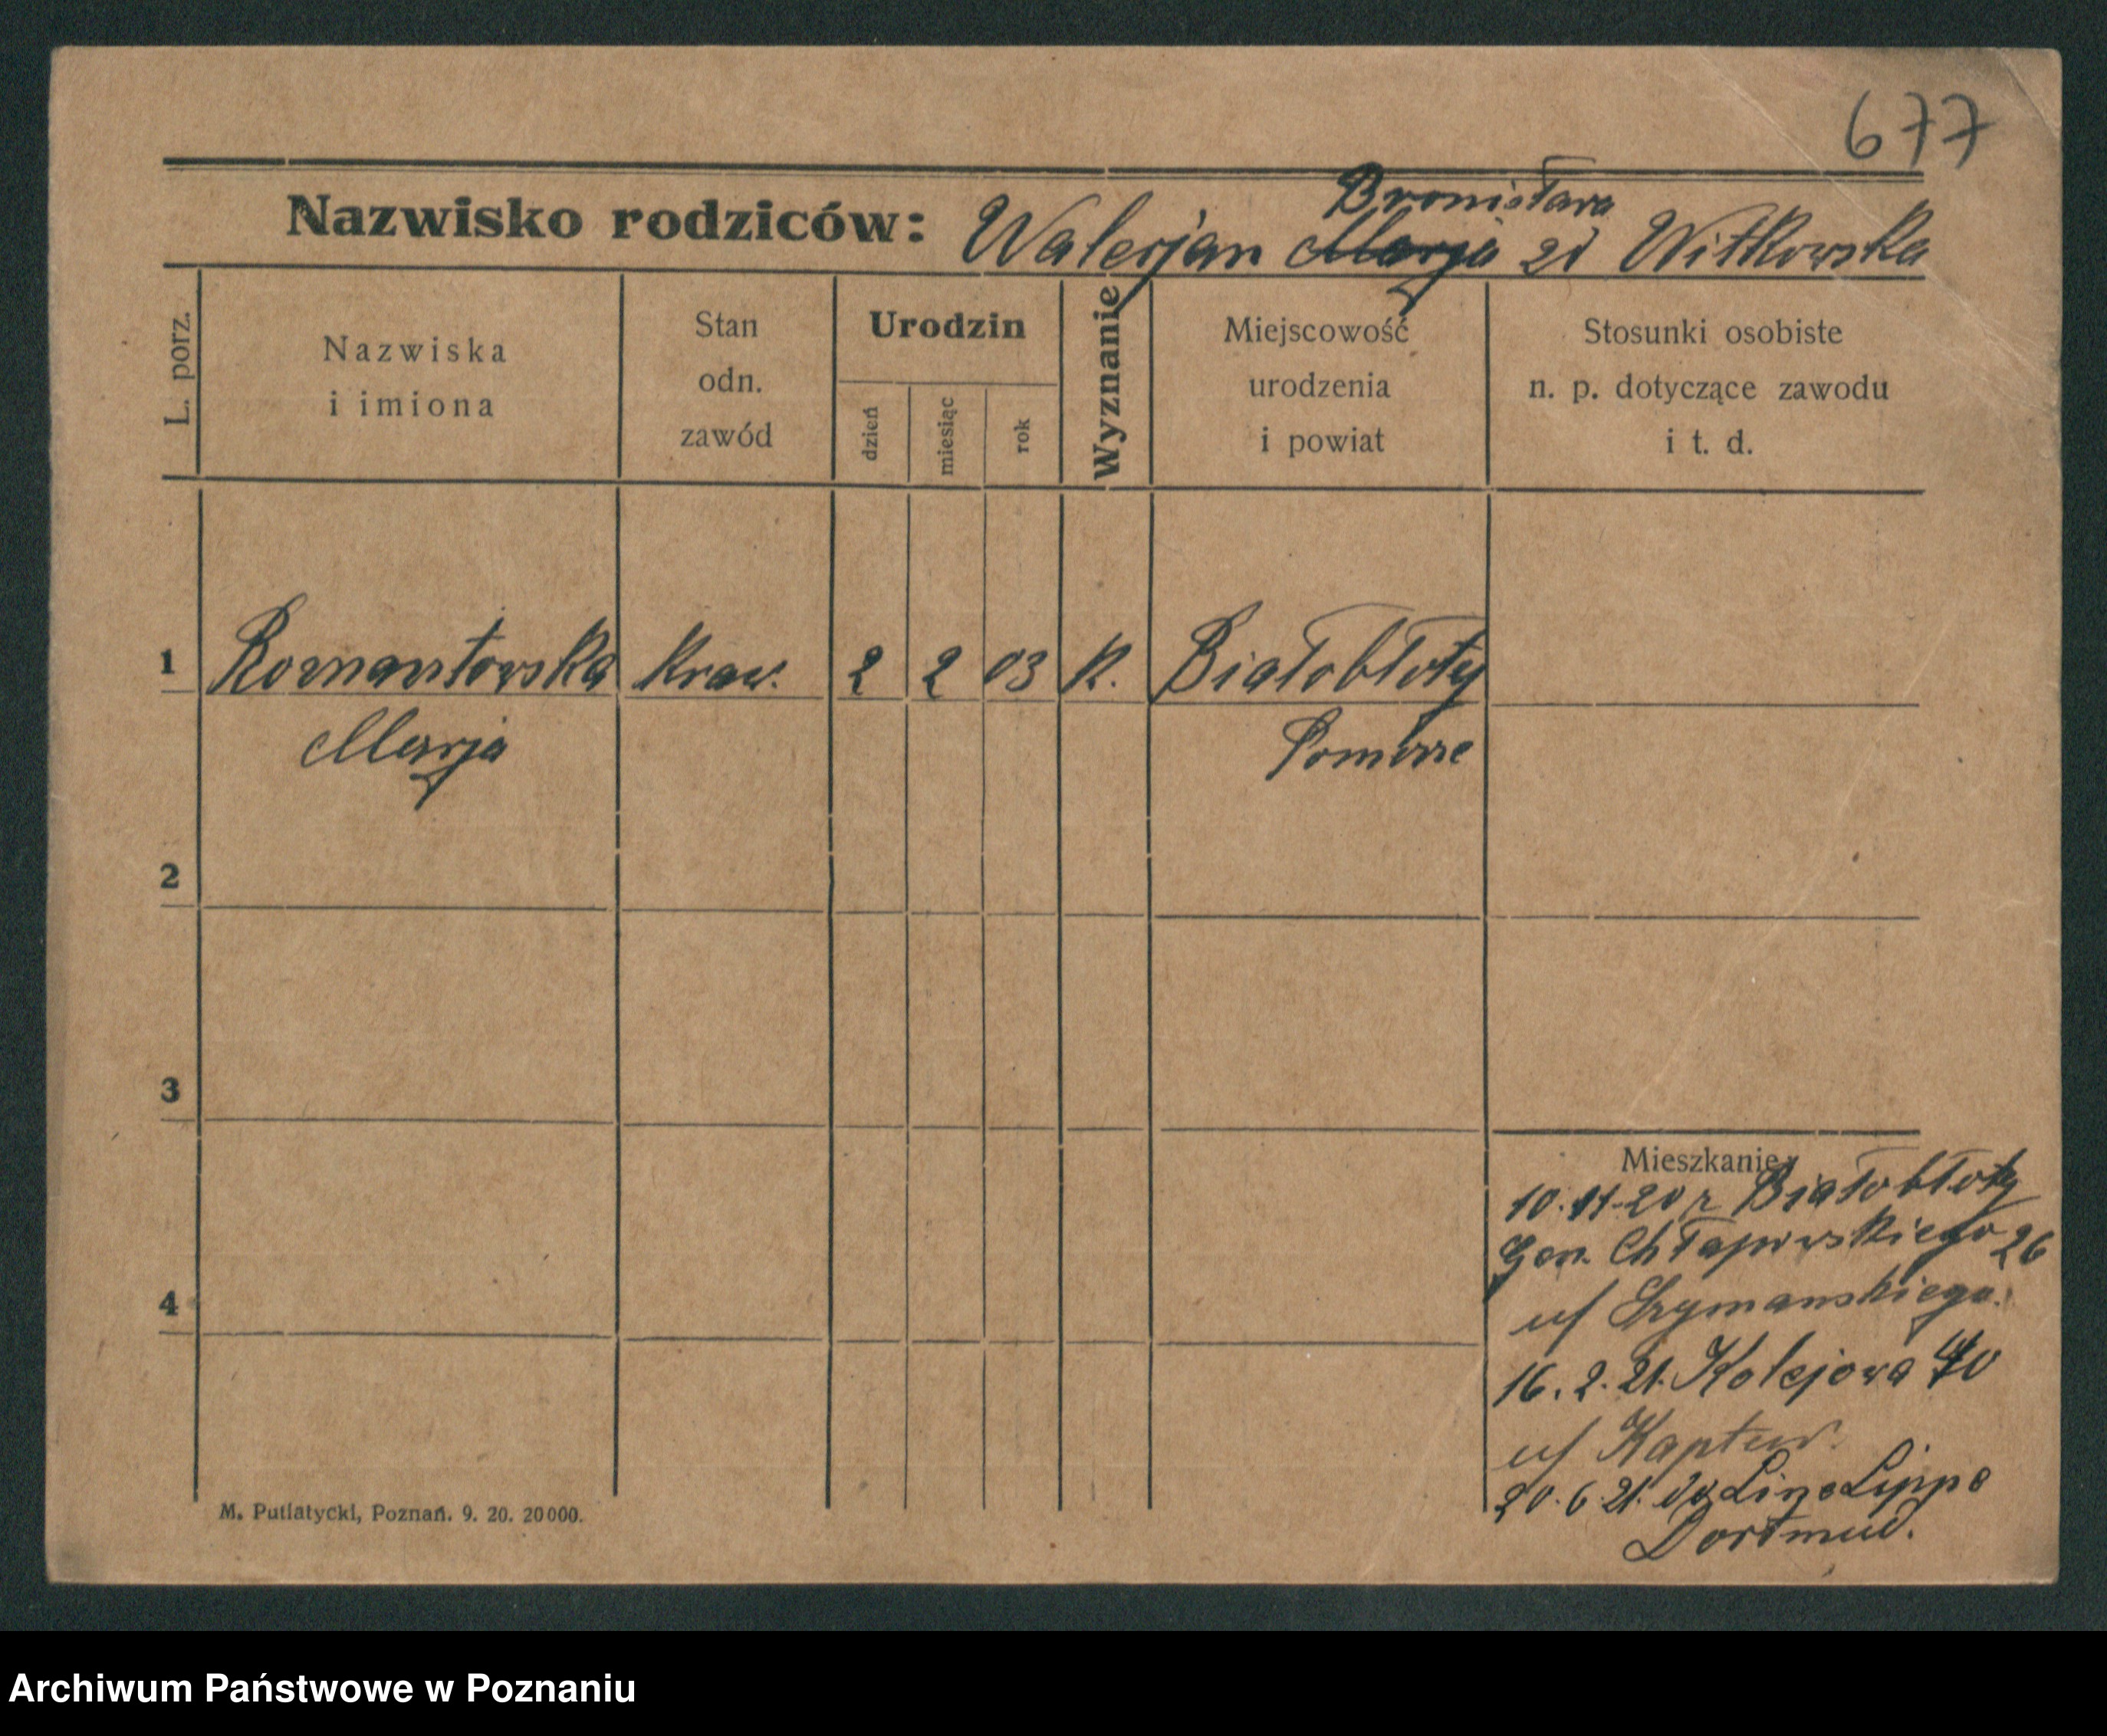 677
Bronisława
Nazwisko rodziców: Walerjan Marja zd Witkowska
L. porz.
Nazwiska
i imiona
Stan
odn.
zawód
Urodzin
dzień
miesiąc
rok
Wyznanie
Miejscowość
urodzenia
i powiat
Stosunki osobiste
n. p. dotyczące zawodu
i t. d.
1 kraw. 2 2 03 k. Białobłoty
Marja
2
3
4
Mieszkanie
10.11.20 z Białobłoty
Gen. Chłapowskiego 26
u/ Szymanskiego.
16.2.21. Kolejowa 40
u/ Kaptur.
20.6.21. Lippe
Dortmund.
M. Putiatycki, Poznań. 9. 20. 20000.
Archiwum Państwowe w Poznaniu